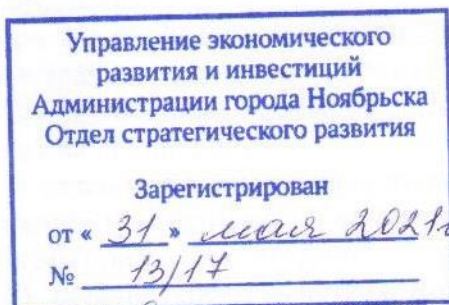 Управление экономического
развития и инвестиций
Администрации города Ноябрьска
Отдел стратегического развития
Зарегистрирован
от « 31 » мая 2021г
№ 13/17